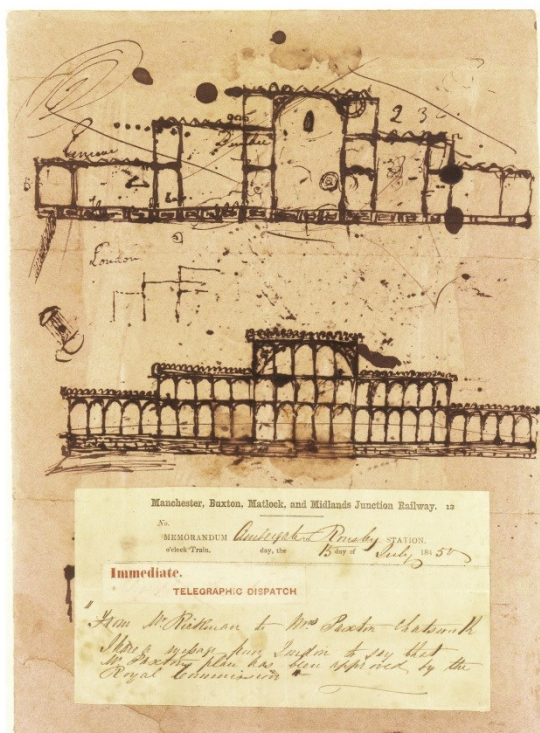 2 3
London
Manchester, Buxton, Matlock, and Midlands Junction Railway. 12
No.
MEMORANDUM STATION.
o'clock Train. day, the 15 day of July 1850
Immediate.
TELEGRAPHIC DISPATCH
"From Mr Kirkman to Mrs Paxton Chatsworth
I have a message from London to say that
Mr Paxtons plan has been approved by the
Royal Commission"